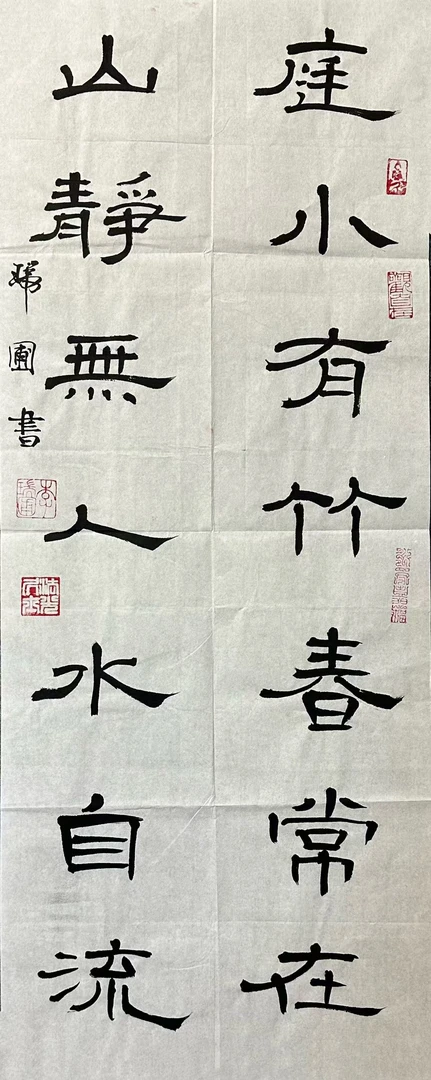 庭小有竹春常在
山靜無人水自流
圃書